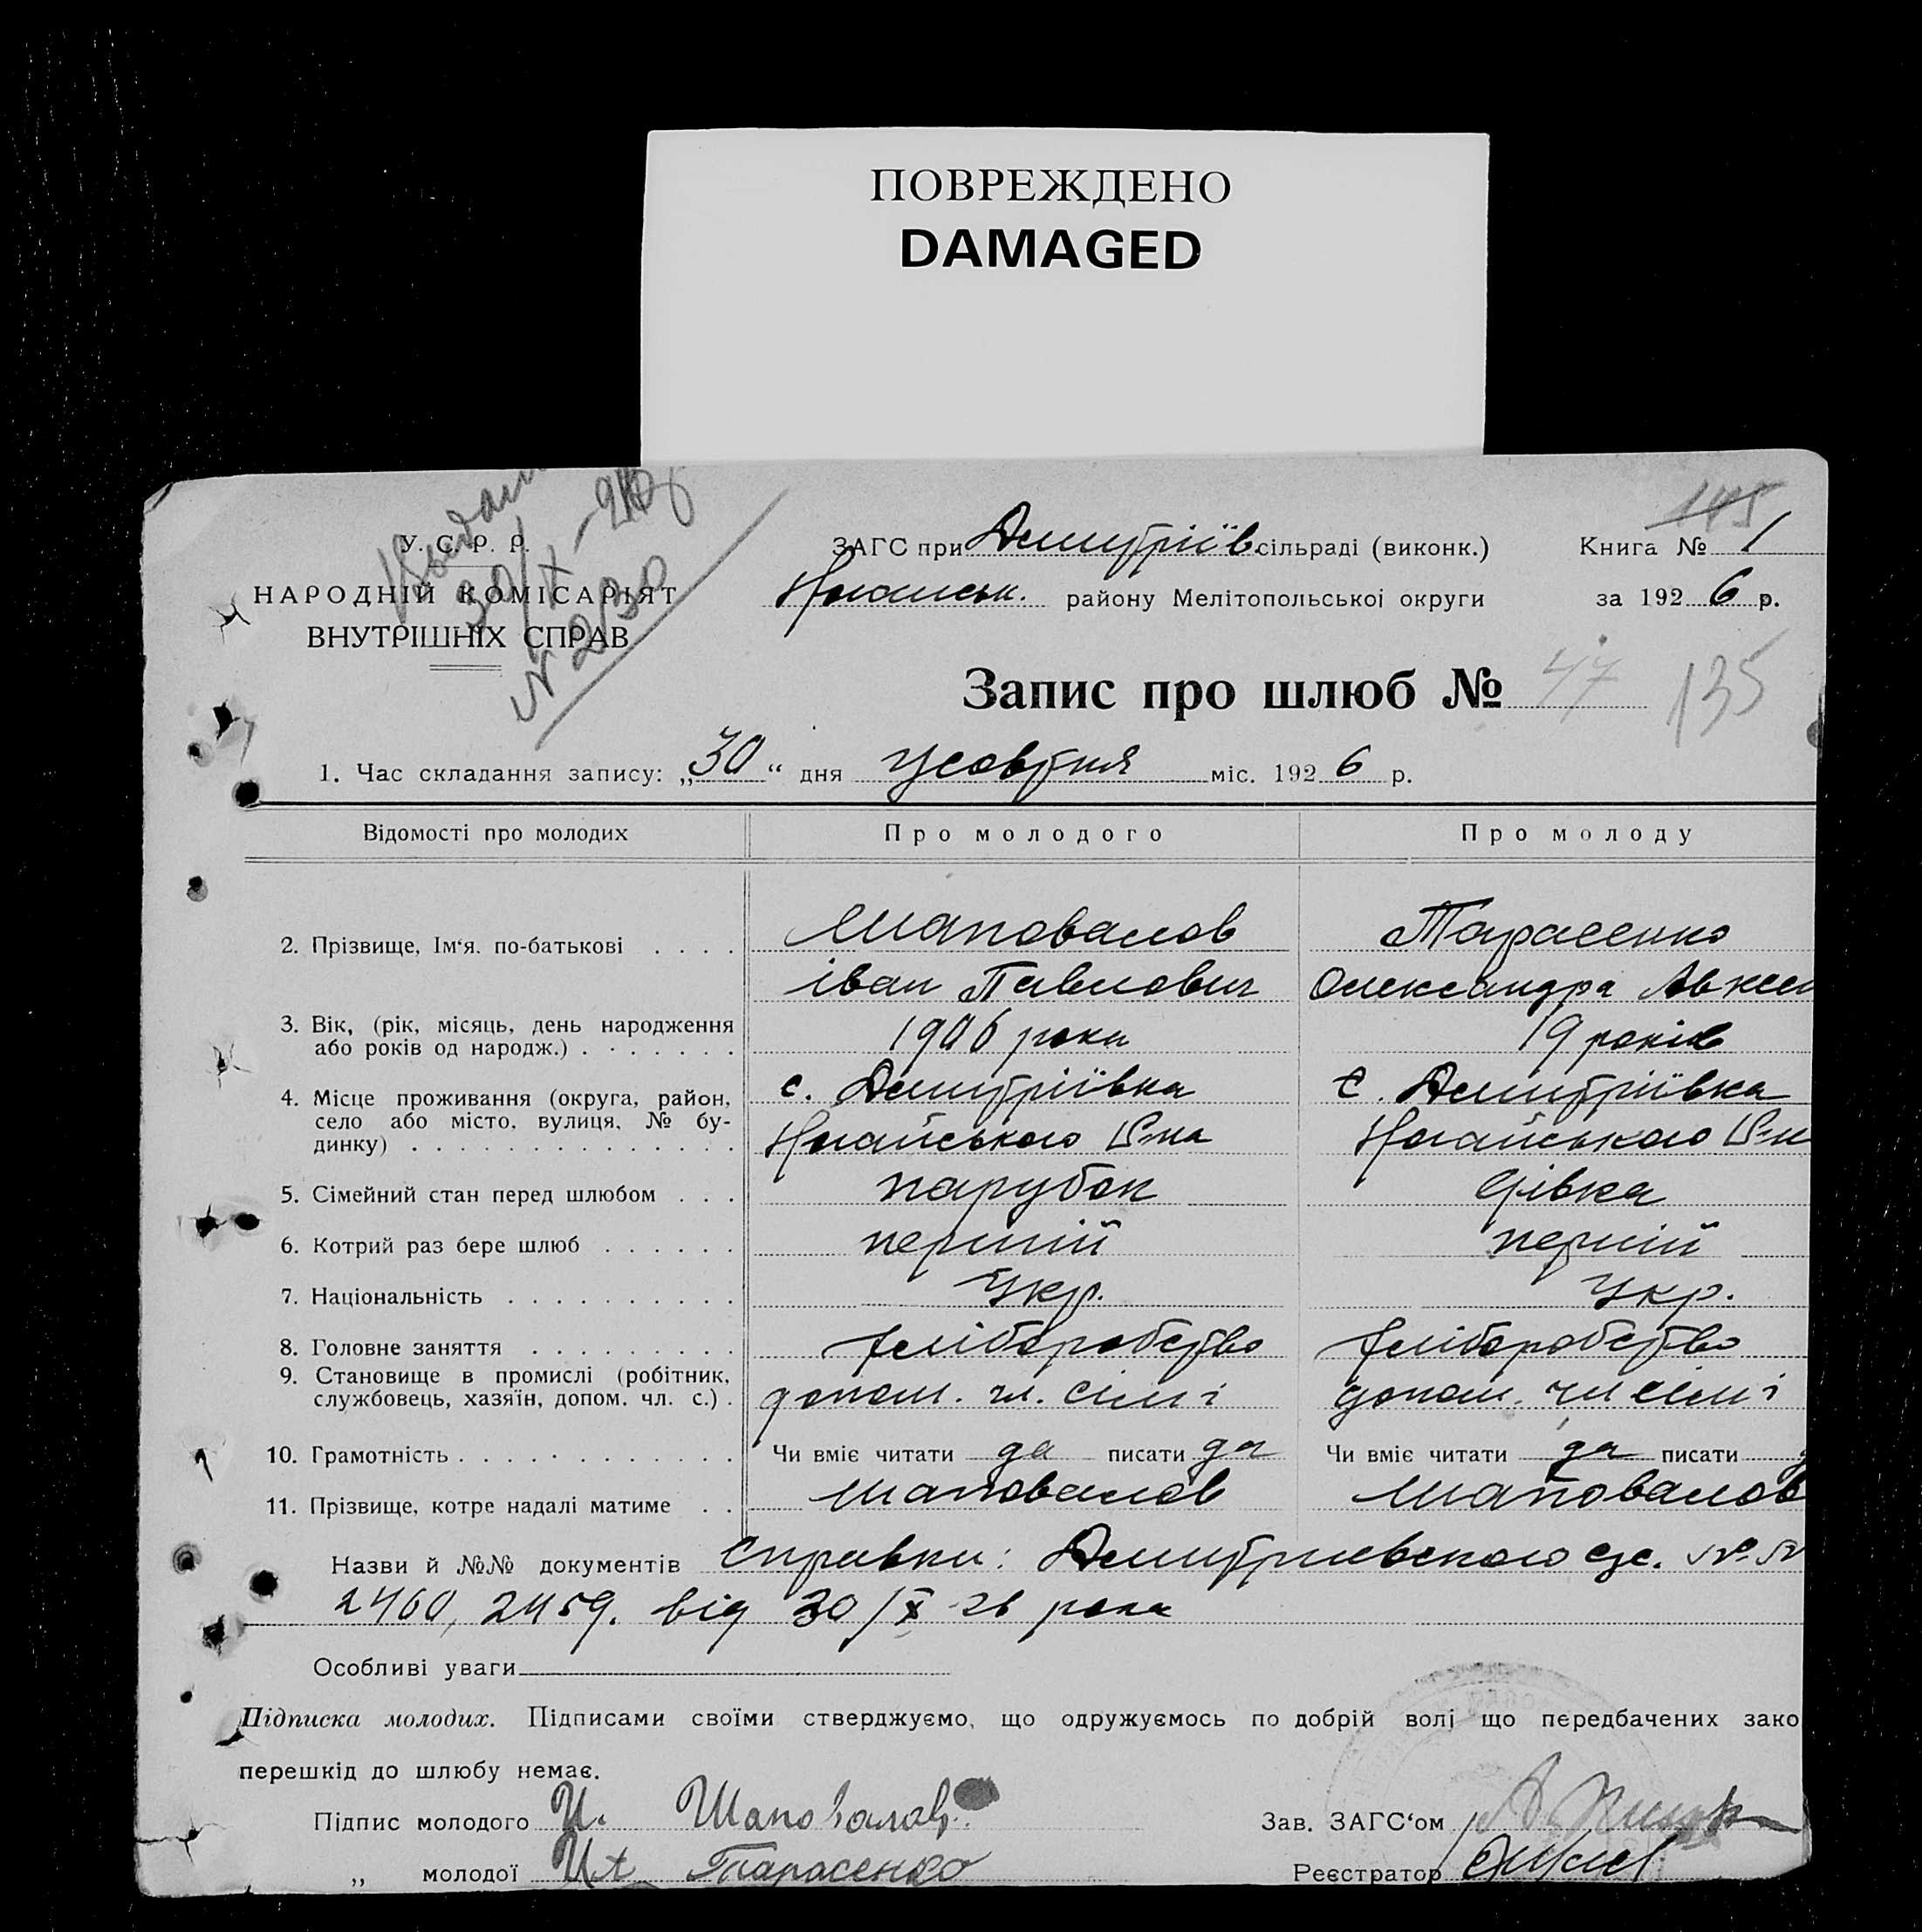 ПОВРЕЖДЕНО
DAMAGED
145
У. С. Р. Р.
НАРОДНІЙ КОМІСАРІЯТ
ВНУТРІШНІХ СПРАВ
30/X-26
№ 2130
ЗАГС при Дмитріїв. сільраді (виконк.) Книга № 1
Ногайськ. району Мелітопольської округи за 1926 р.
Запис про шлюб № 47 135
1. Час складання запису: „30“ дня жовтня міс. 1926 р.
Відомості про молодих Про молодого Про молоду
2. Прізвище, Ім'я. по-батькові . . . . Шаповалов Тарасенко
Іван Павлович Олександра Авксен
3. Вік, (рік, місяць, день народження 1906 рока 19 років
або років од народж.) . . . . . . .
4. Місце проживання (округа, район, с. Дмитріївка с. Дмитріївка
село або місто, вулиця, № бу- Ногайського Р-на Ногайського Р-н
динку) . . . . . . . . . . . . . .
5. Сімейний стан перед шлюбом . . . парубок дівка
6. Котрий раз бере шлюб . . . . . . перший перший
7. Національність . . . . . . . . . . Укр. Укр.
8. Головне заняття . . . . . . . . . хліборобство хліборобство
9. Становище в промислі (робітник,
службовець, хазяїн, допом. чл. с.) . допом. чл. сім'і допом. чл сім'і
10. Грамотність . . . . . . . . . . . . Чи вміє читати да писати да Чи вміє читати да писати
11. Прізвище, котре надалі матиме . . Шаповалов Шаповалов
Назви й №№ документів Справки: Дмитриевского с/с. №№
2460, 2459. від 30/X 26 рока
Особливі уваги
Підписка молодих. Підписами своїми стверджуємо, що одружуємось по добрій волі що передбачених зако
перешкід до шлюбу немає.
Підпис молодого И. Шаповалов. Зав. ЗАГС'ом
„ молодої Тарасенко Реєстратор